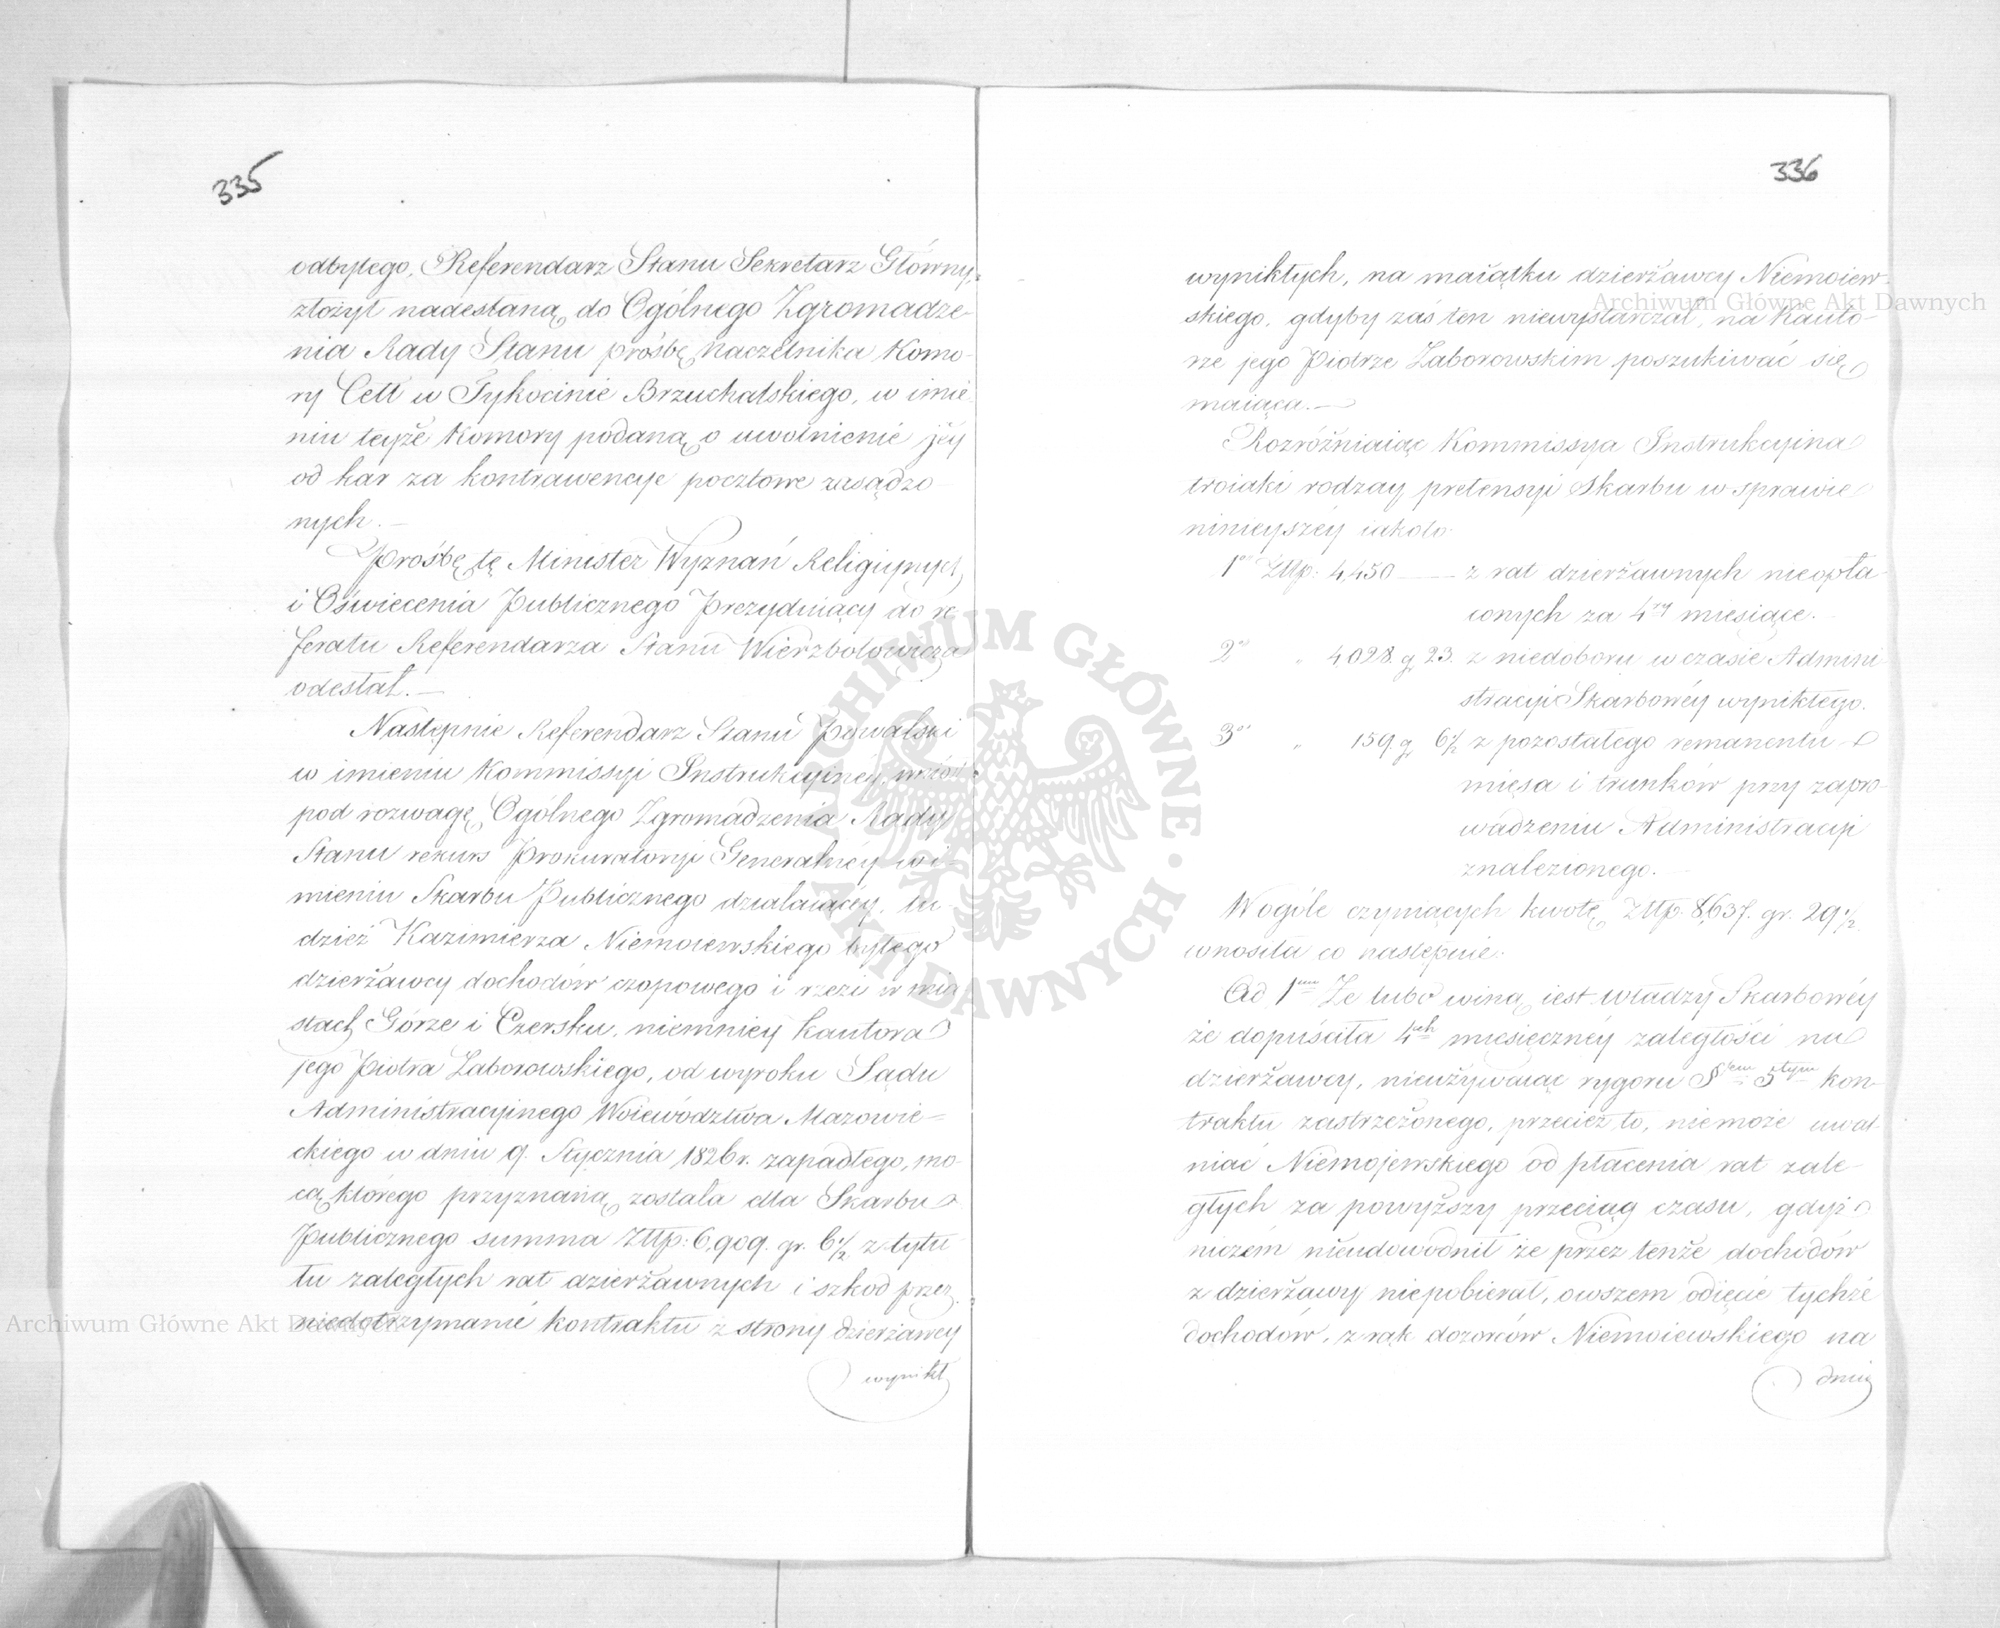 335
odbytego, Referendarz Stanu Sekretarz Główny,
złożył nadesłaną do Ogólnego Zgromadze-
nia Rady Stanu prośbę Naczelnika Komo-
ry Cell w Tykocinie Brzuchalskiego, w imie-
niu teyże Komory podaną o uwolnienie jéy
od kar za kontrawencye pocztowe zasądzo
nych. —
Prośbę tę Minister Wyznań Religijnych
i Oświecenia Publicznego Prezydujący do re
feratu Referendarza Stanu Wierzbołowicza
odesłał. —
Następnie Referendarz Stanu Powalski
w imieniu Kommissyi Instrukcyjney, wniósł
pod rozwagę Ogólnego Zgromadzenia Rady
Stanu rekurs Prokuratoryi Generalnéy w i-
mieniu Skarbu Publicznego działaiącéy, tu-
dzież Kazimierza Niemoiewskiego byłego
dzierżawcy dochodów czopowego i rzezi w mia
stach Górze i Czersku, niemniey kautora
jego Piotra Zaborowskiego, od wyroku Sądu
Administracyjnego Woiewództwa Mazowie-
ckiego w dniu 9. Stycznia 1826 r. zapadłego, mo-
cą którego przyznaną została dla Skarbu
Publicznego summa Złłp: 6,909. gr. 6 1/2 z tytu
łu zaległych rat dzierżawnych i szkod przez
niedotrzymanie kontraktu z strony dzierżawcy
wynikł
336
wynikłych, na maiątku dzierżawcy Niemoiew-
skiego, gdyby zaś ten niewystarczał, na Kauto-
rze jego Piotrze Zaborowskim poszukiwać się
maiąca. —
Rozróżniaiąc Kommissya Instrukcyjna
troiaki rodzay pretensyi Skarbu w sprawie
ninieyszéy iakoto
1o Złłp: 4,450 — z rat dzierżawnych nieopła-
conych za 4ry miesiące. —
2o " 4,028. g. 23. z niedoboru w czasie Admini
stracyi Skarbowéy wynikłego.
3o " 159. g. 6 1/2 z pozostałego remanentu
mięsa i trunków przy zapro-
wadzeniu Administracyi
znalezionego. —
W ogóle czyniących kwotę Złłp. 8,637. gr. 29 1/2
wnosiła co następuie.
Ad 1mum Że lubo winą iest Władzy Skarbowéy
że dopuściła 4ch miesięcznéy zaległości na
dzierżawcy, nieużywaiąc rygoru §em 5tym kon-
traktu zastrzeżonego, przecież to, niemoże uwal
niać Niemojewskiego od płacenia rat zale-
głych za powyższy przeciąg czasu, gdyż
niczém nieudowodnił że przez tenże dochodów
z dzierżawy niepobierał, owszem odięcie tychże
dochodów, z rąk dozorców Niemoiewskiego na
dniu
Archiwum Główne Akt Dawnych
Archiwum Główne Akt Dawnych
ARCHIWUM GŁÓWNE AKT DAWNYCH